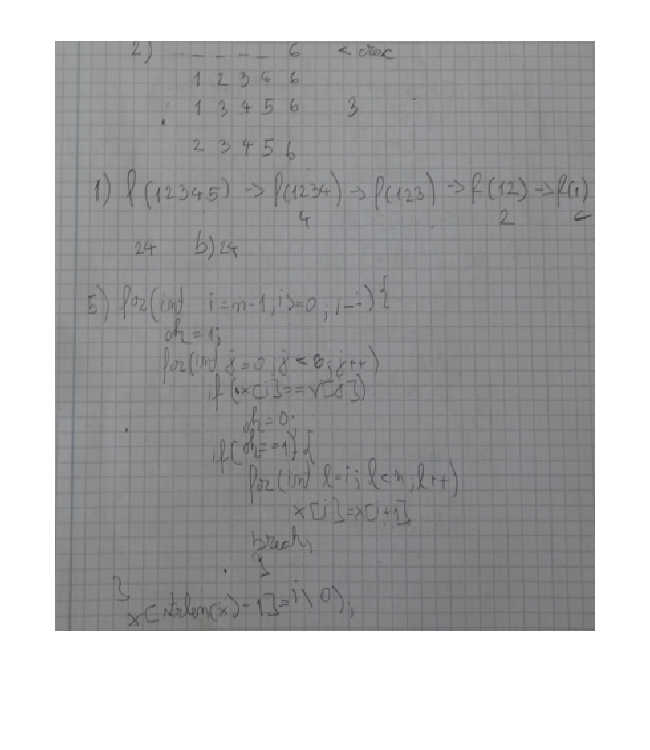 2) _ _ _ _ 6
1 2 3 4 6
1 3 4 5 6 3
2 3 4 5 6
1) f(12345) -> f(1234) -> f(123) -> f(12) -> f(1)
4 2
24 b) 24
5) for(int i=n-1; i>=0; i--){
ok=1;
for(int j=0; j<6; j++)
if(x[i]==v[j])
ok=0;
if(ok==1){
for(int l=i; l<n; l++)
x[i]=x[i+1]
break;
}
}
x[strlen(x)-1]='\0';